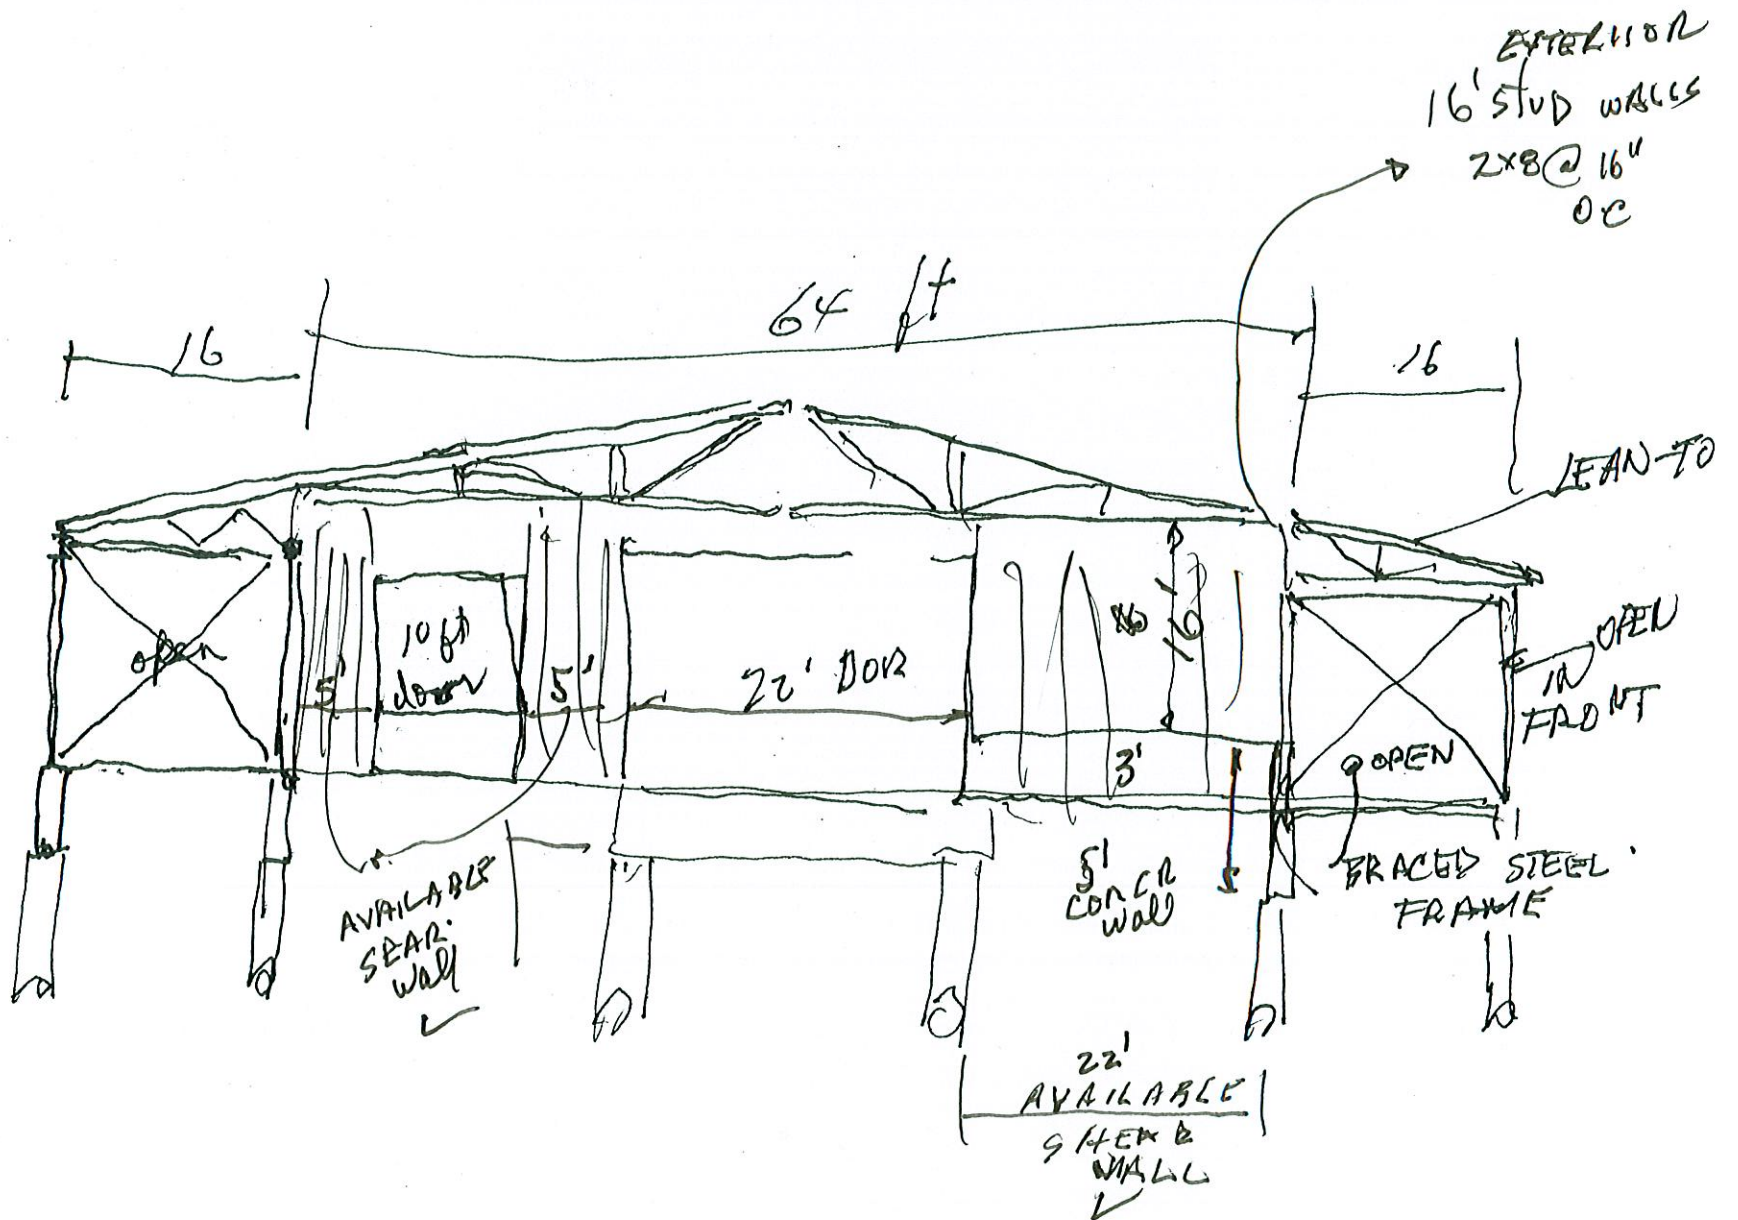 EXTERIIOR
16' STUD WALLS
2x8@ 16"
OC
64 ft
16
16
LEAN-TO
open
5'
10 ft
door
5'
22' DOR
16'
3'
OPEN
IN
FRONT
OPEN
BRACED STEEL
FRAME
AVAILABLE
SEAR.
Wall
5'
CONCR
Wall
5
22'
AVAILABLE
SHEAR
WALL